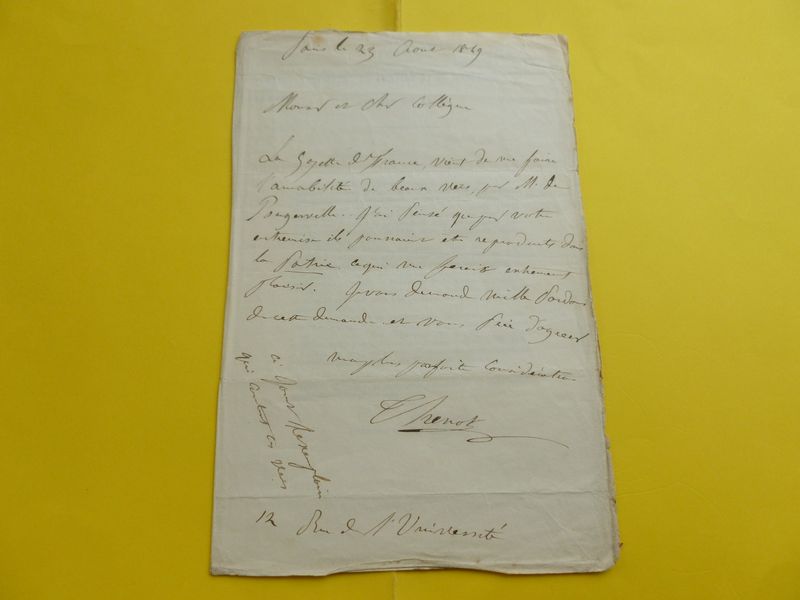 Paris le 23 Aout 1849
Monsieur et Cher Collègue
La Gazette de France, vient de me faire
l'amabilité de beaux vers, par M. de
Pongerville. J'ai Pensé que par votre
entremise ils pouvaient etre reproduits dans
la Patrie ce qui me ferait
Plaisir. Je vous demande mille Pardons
de cette demande et vous Prie d'agréer
ma plus parfaite Considération
Thenot
ci Joint
qui contient ces vers
12 Rue de l'Université